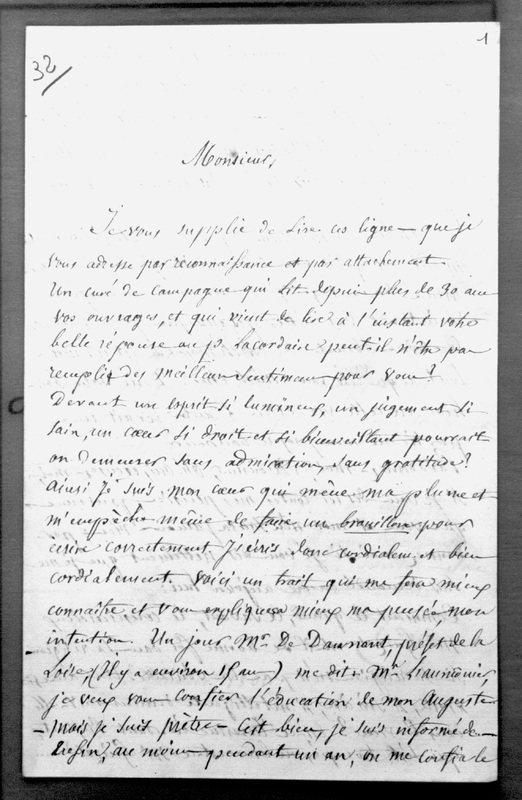 1
32/
Monsieur,
Je vous supplie de lire ces ligne — que je
vous adresse par reconnaissance et par attachement.
Un curé de campagne qui lit depuis plus de 30 ans
vos ouvrages, et qui vient de lire à l'instant votre
belle réponse au p. Lacordaire peut-il n'être pas
remplis des meilleurs sentimens pour vous ?
Devant un esprit si lumineux, un jugement si
sain, un cœur si droit et si bienveillant pourrait
on demeurer sans admiration, sans gratitude ?
Ainsi je suis mon cœur qui mène ma plume et
m'empêche même de faire un brouillon pour
écrire correctement. J'écris donc cordialem. et bien
cordialement. Voici un trait qui me fera mieux
connaître et vous expliquera mieux ma pensée, mon
intention. Un jour Mr. De Daunant, préfet de la
Loire, (il y a environ 15 ans) me dit : Mr. L'aumônier,
je veux vous confier l'éducation de mon Auguste
— mais je suis prêtre — C'est bien, je suis informé de —
Enfin, au moins pendant un an, on me confia le